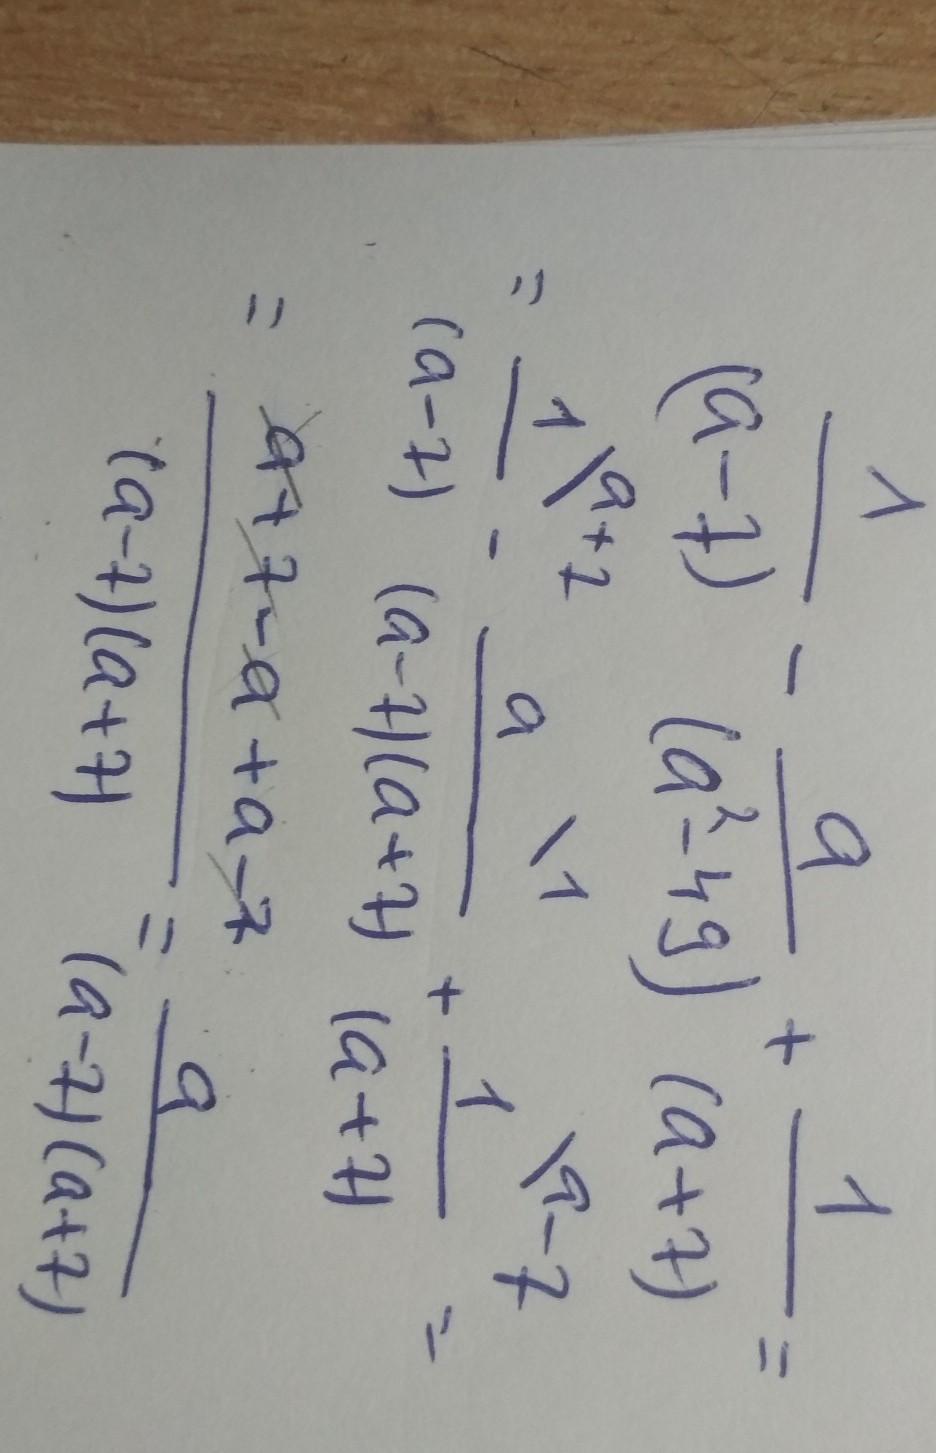 1/(a-7) - a/(a²-49) + 1/(a+7) =
= 1\a+7/(a-7) - a\1/(a-7)(a+7) + 1\a-7/(a+7) =
= a+7-a+a-7/(a-7)(a+7) = a/(a-7)(a+7)